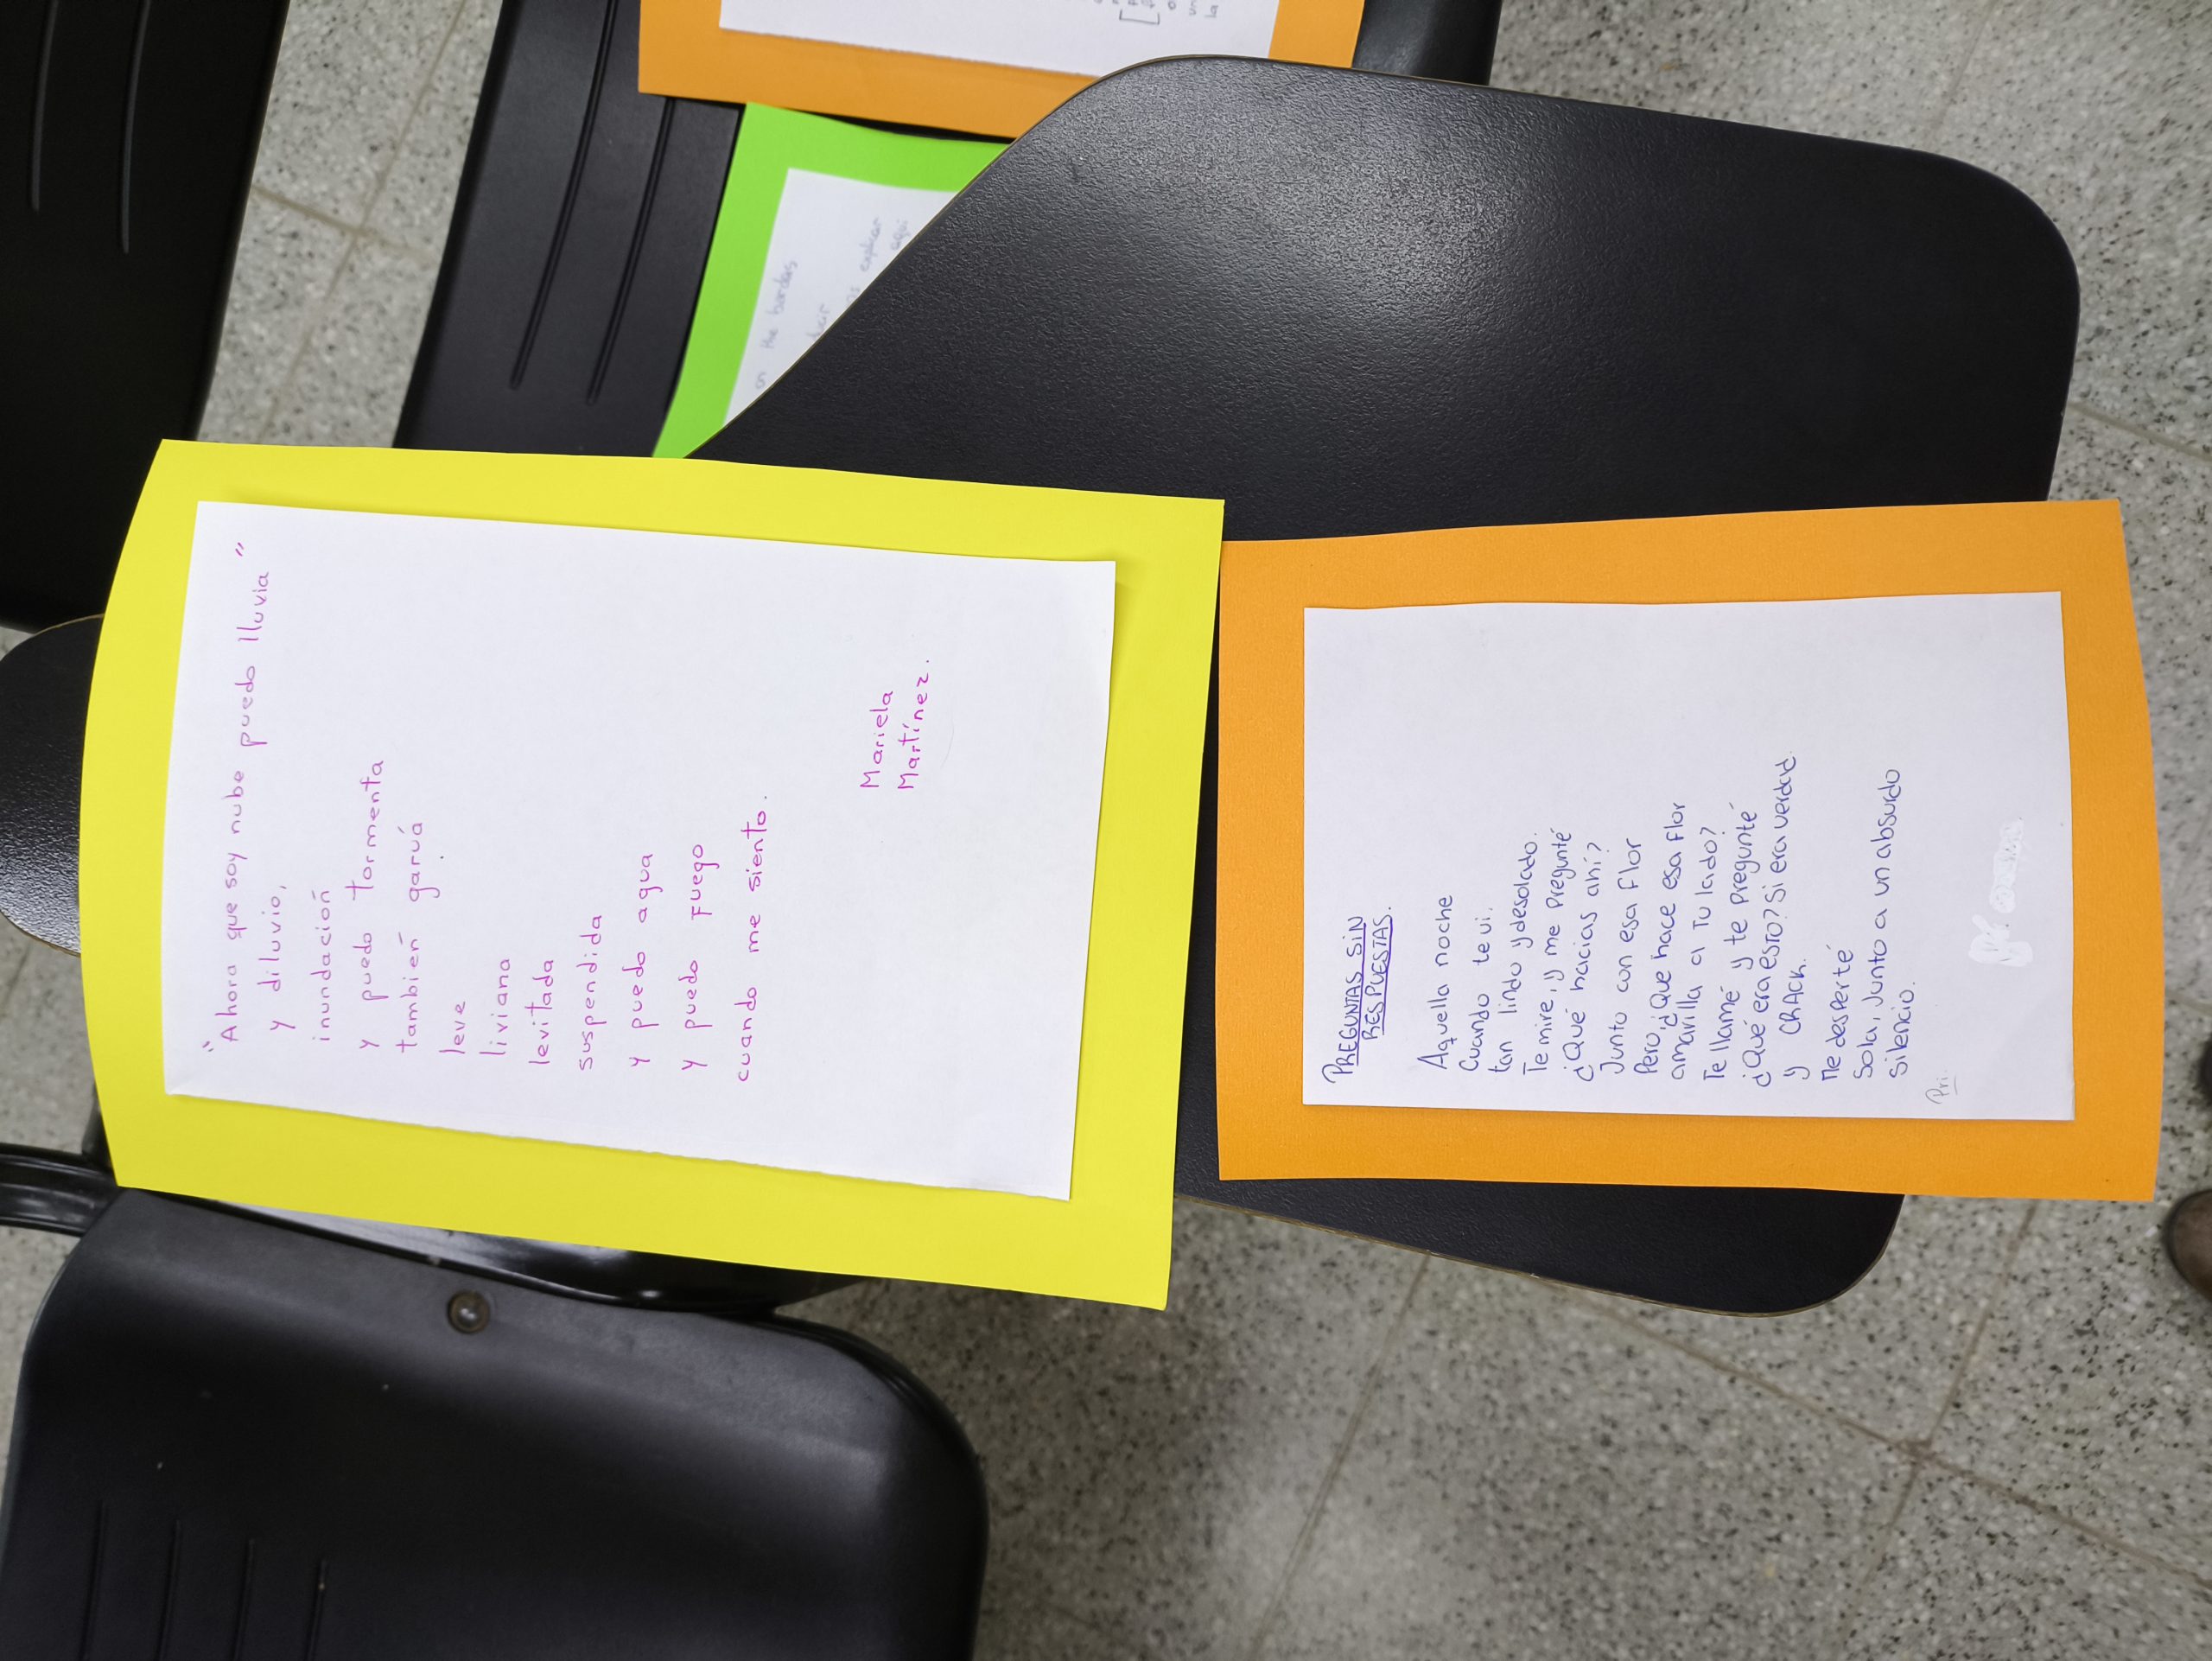 "Ahora que soy nube puedo lluvia"
y diluvio,
inundación
y puedo tormenta
también garúa.
leve
liviana
levitada
suspendida
y puedo agua
y puedo fuego
cuando me siento.
Mariela
Martínez.
PREGUNTAS SIN
RESPUESTAS.
Aquella noche
Cuando te vi,
tan lindo y desolado.
Te mire, y me pregunté
¿Qué hacias ahí?
Junto con esa flor
Pero, ¿Que hace esa flor
amarilla a tu lado?
Te llamé y te pregunté
¿Qué era esto? Si era verdad
y CRACK.
Me desperté
Sola, Junto a un absurdo
silencio.
Pri.
on the bardas
explicar
aqui
la